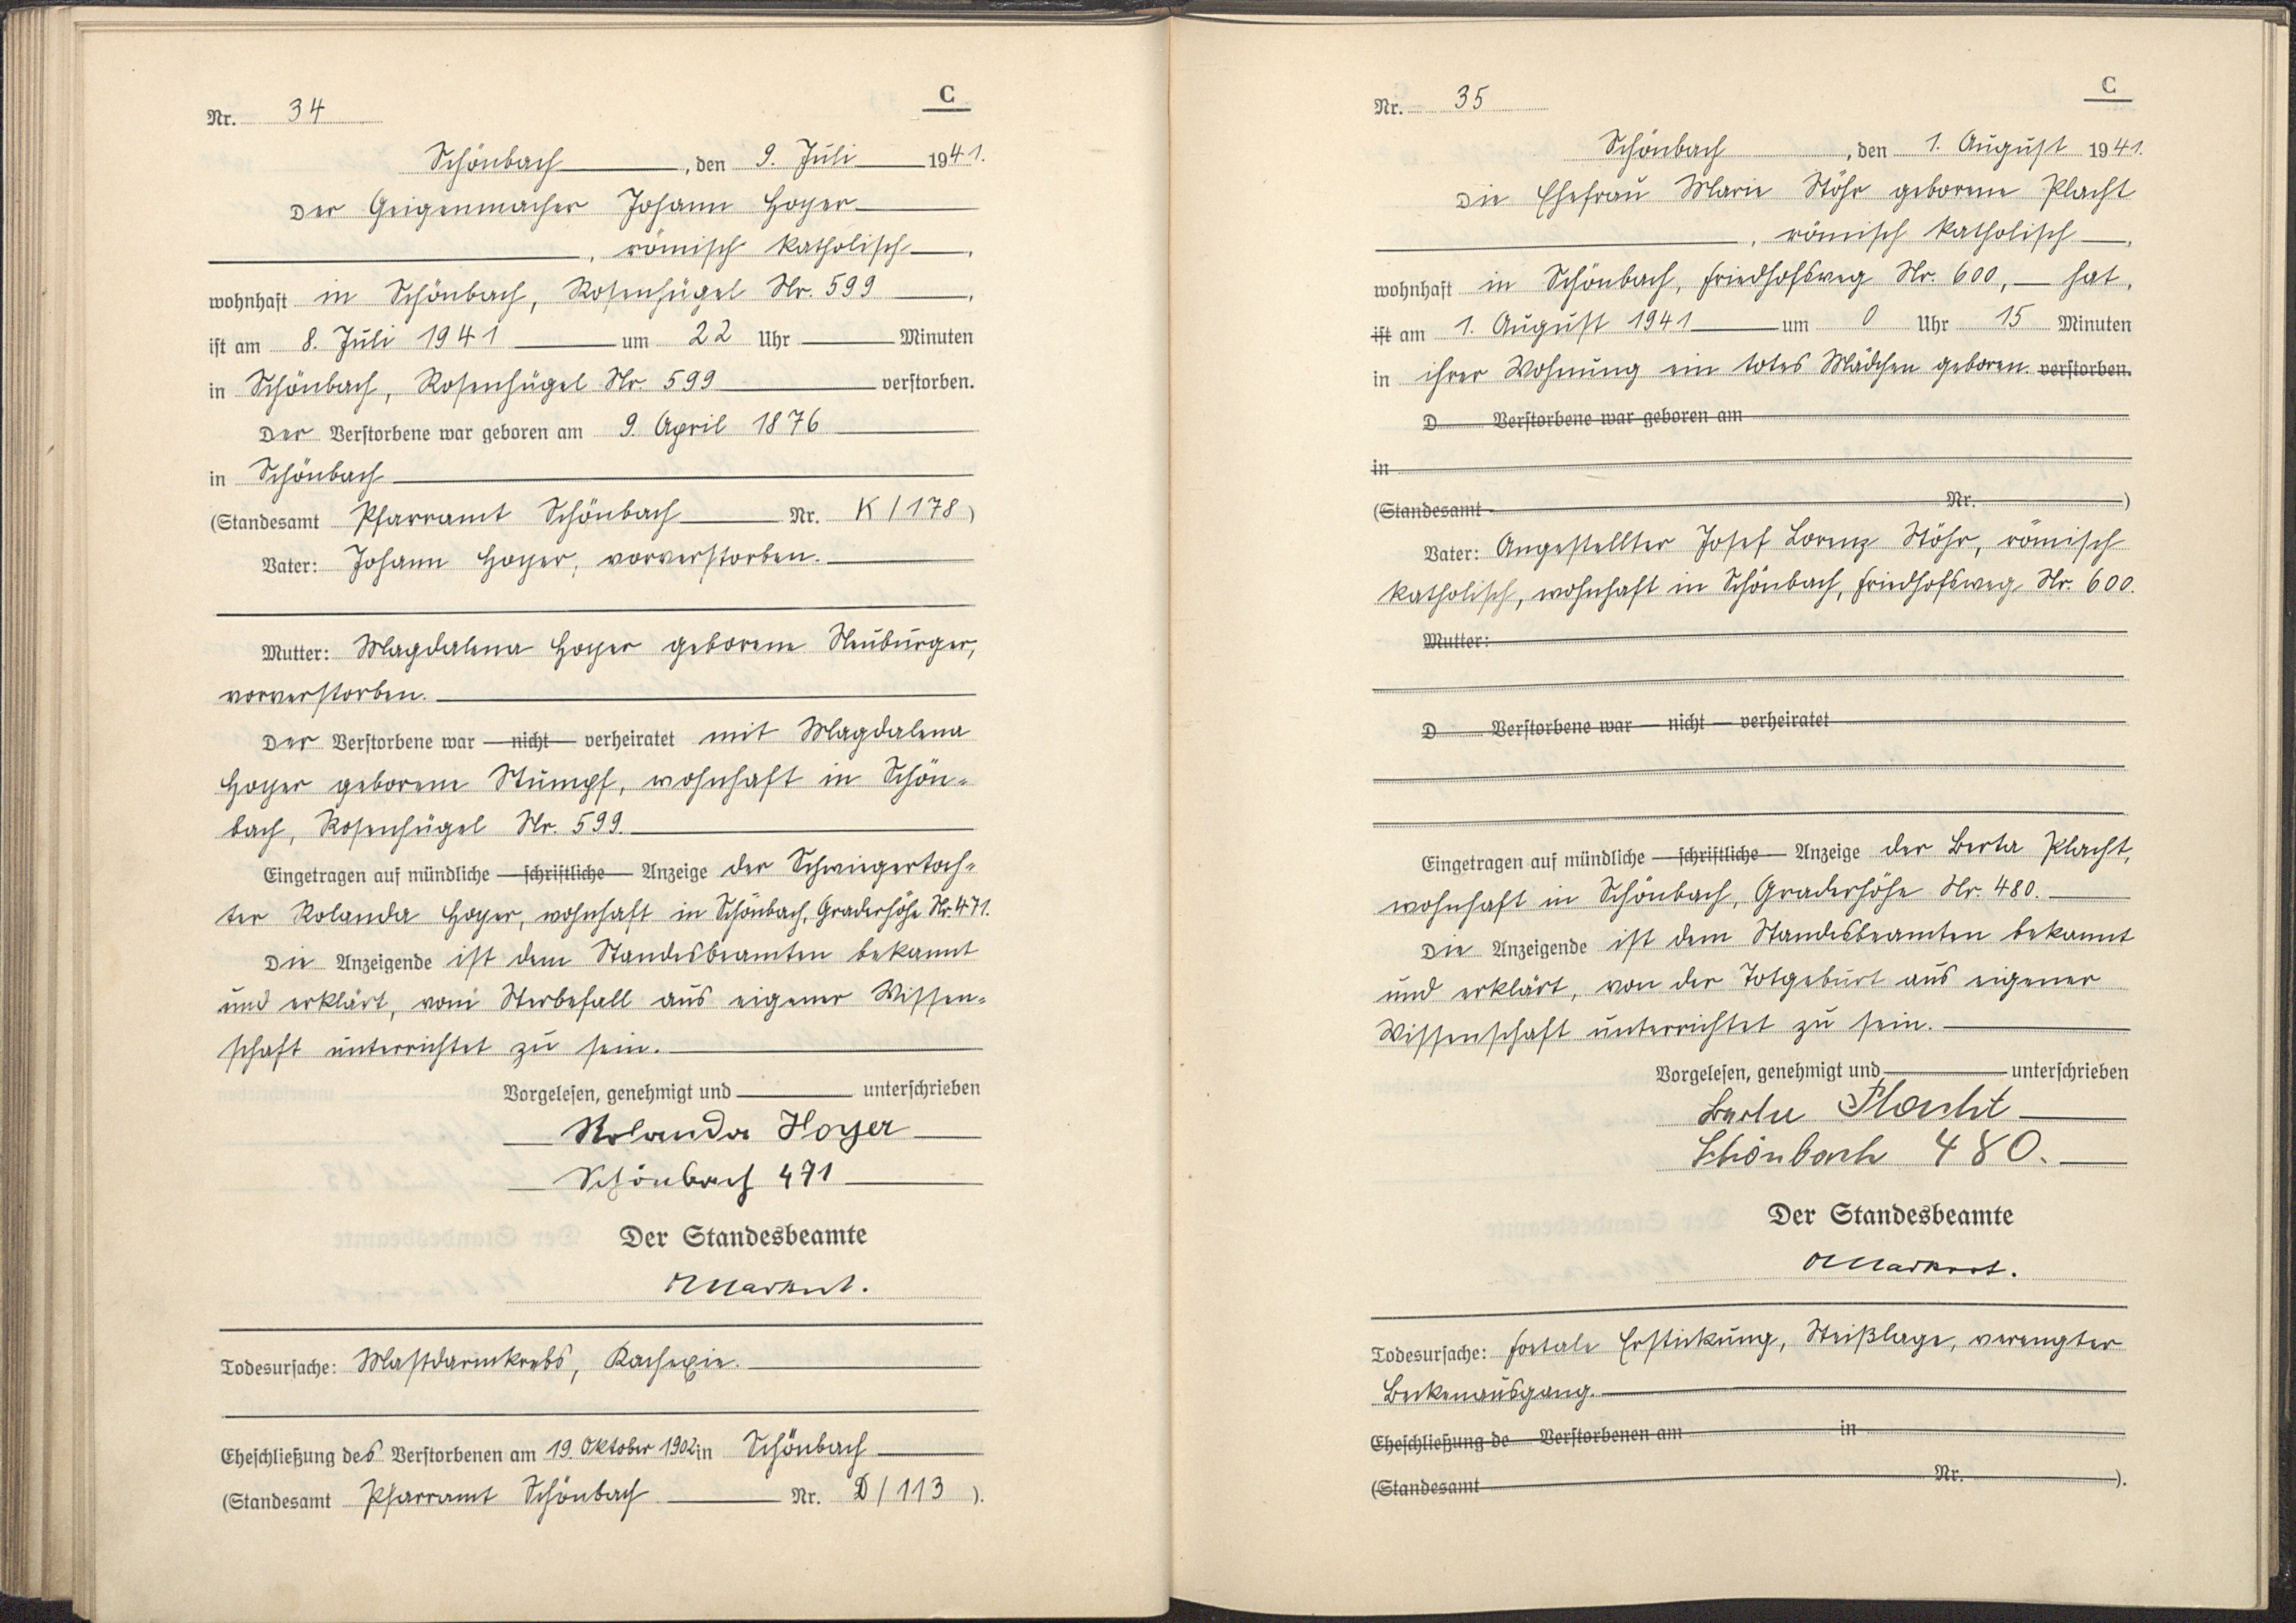 C
Nr. 34
Schönbach, den 9. Juli 1941.
Der Geigenmacher Johann Hoyer
, römisch katholisch,
wohnhaft in Schönbach, Rosenhügel Nr. 599,
ist am 8. Juli 1941 um 22 Uhr Minuten
in Schönbach, Rosenhügel Nr. 599 verstorben.
Der Verstorbene war geboren am 9. April 1876
in Schönbach
(Standesamt Pfarramt Schönbach Nr. K/178)
Vater: Johann Hoyer, vorverstorben.
Mutter: Magdalena Hoyer geborene Neubürger,
vorverstorben.
Der Verstorbene war — nicht — verheiratet mit Magdalena
Hoyer geborene Stumpf, wohnhaft in Schön-
bach, Rosenhügel Nr. 599.
Eingetragen auf mündliche — schriftliche — Anzeige der Schwiegertoch-
ter Rolanda Hoyer, wohnhaft in Schönbach, Graderhöhe Nr. 471.
Die Anzeigende ist dem Standesbeamten bekannt
und erklärt, vom Sterbefall aus eigener Wissen-
schaft unterrichtet zu sein.
Vorgelesen, genehmigt und unterschrieben
Rolanda Hoyer
Schönbach 471
Der Standesbeamte
Todesursache: Mastdarmkrebs, Kachexie.
Eheschließung des Verstorbenen am 19. Oktober 1902 in Schönbach
(Standesamt Pfarramt Schönbach Nr. D/113).
C
Nr. 35
Schönbach, den 1. August 1941.
Die Ehefrau Marie Stöhr geborene Placht
, römisch katholisch,
wohnhaft in Schönbach, Friedhofsweg Nr. 600, — hat,
ist am 1. August 1941 um 0 Uhr 15 Minuten
in ihrer Wohnung ein totes Mädchen geboren. verstorben.
D Verstorbene war geboren am
in
(Standesamt Nr. )
Vater: Angestellter Josef Lorenz Stöhr, römisch
katholisch, wohnhaft in Schönbach, Friedhofsweg Nr. 600.
Mutter:
D Verstorbene war — nicht — verheiratet
Eingetragen auf mündliche — schriftliche — Anzeige der Berta Placht,
wohnhaft in Schönbach, Graderhöhe Nr. 480.
Die Anzeigende ist dem Standesbeamten bekannt
und erklärt, von der Totgeburt aus eigener
Wissenschaft unterrichtet zu sein.
Vorgelesen, genehmigt und unterschrieben
Berta Placht
Schönbach 480.
Der Standesbeamte
Todesursache: foetale Erstickung, Steißlage, verengter
Beckenausgang.
Eheschließung de Verstorbenen am in
(Standesamt Nr. ).